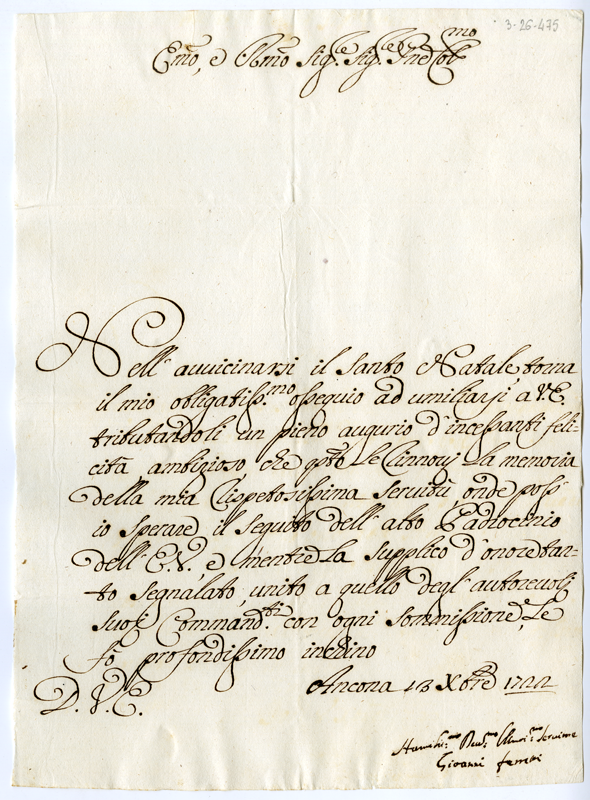 3-26-475
Emo, e Rmo Sig.re Sig.re Pne Col.mo
Nell' avvicinarsi il Santo Natale torna
il mio obligatiss.mo ossequio ad umiliarsi a V.E.
tributandoli un pieno augurio d'incessanti feli-
cità ambizioso che qsto Le rinnovj la memoria
della mia rispetosissima servitù, onde poss'
io sperare il seguito dell' alto Padrocinio
dell' E.V. e mentre La supplico d'onore tan-
to segnalato, unito a quello degl' autorevoli
suoi Command.ti con ogni sommissione Le
fò profondissimo inchino
Ancona 13 Xbre 1722
D. V. E.
Humiliss.mo Devot.mo Servitore
Giovanni